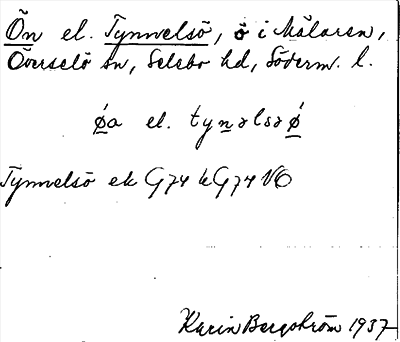 Ön el. Tynnelsö, ö i Mälaren,
Överselö sn, Selebo hd, Söderm. l.
ǿa el. tynəlsəǿ
Tynnelsö ek G74 kG74 VO
Karin Bergström 1937